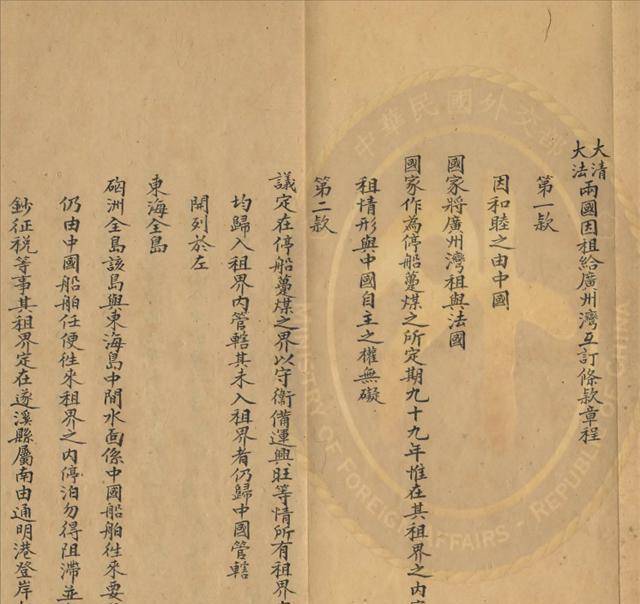 大清
大法
兩國因租給廣州灣互訂條款章程
第一款
因和睦之由中國
國家將廣州灣租與法國
國家作為停船躉煤之所定期九十九年惟在其租界之內
租情形與中國自主之權無礙
第二款
議定在停船躉煤之界以守衛備運興旺等情所有租界
均歸入租界內管轄其未入租界者仍歸中國管轄
開列於左
東海全島
硇洲全島該島與東海島中間水面係中國船舶往來要
仍由中國船舶任便往來租界之內停泊勿得阻滯並
鈔征稅等事其租界定在遂溪縣屬南由通明港登岸
中華民國外交部
MINISTRY OF FOREIGN AFFAIRS - REPUBLIC OF CHINA